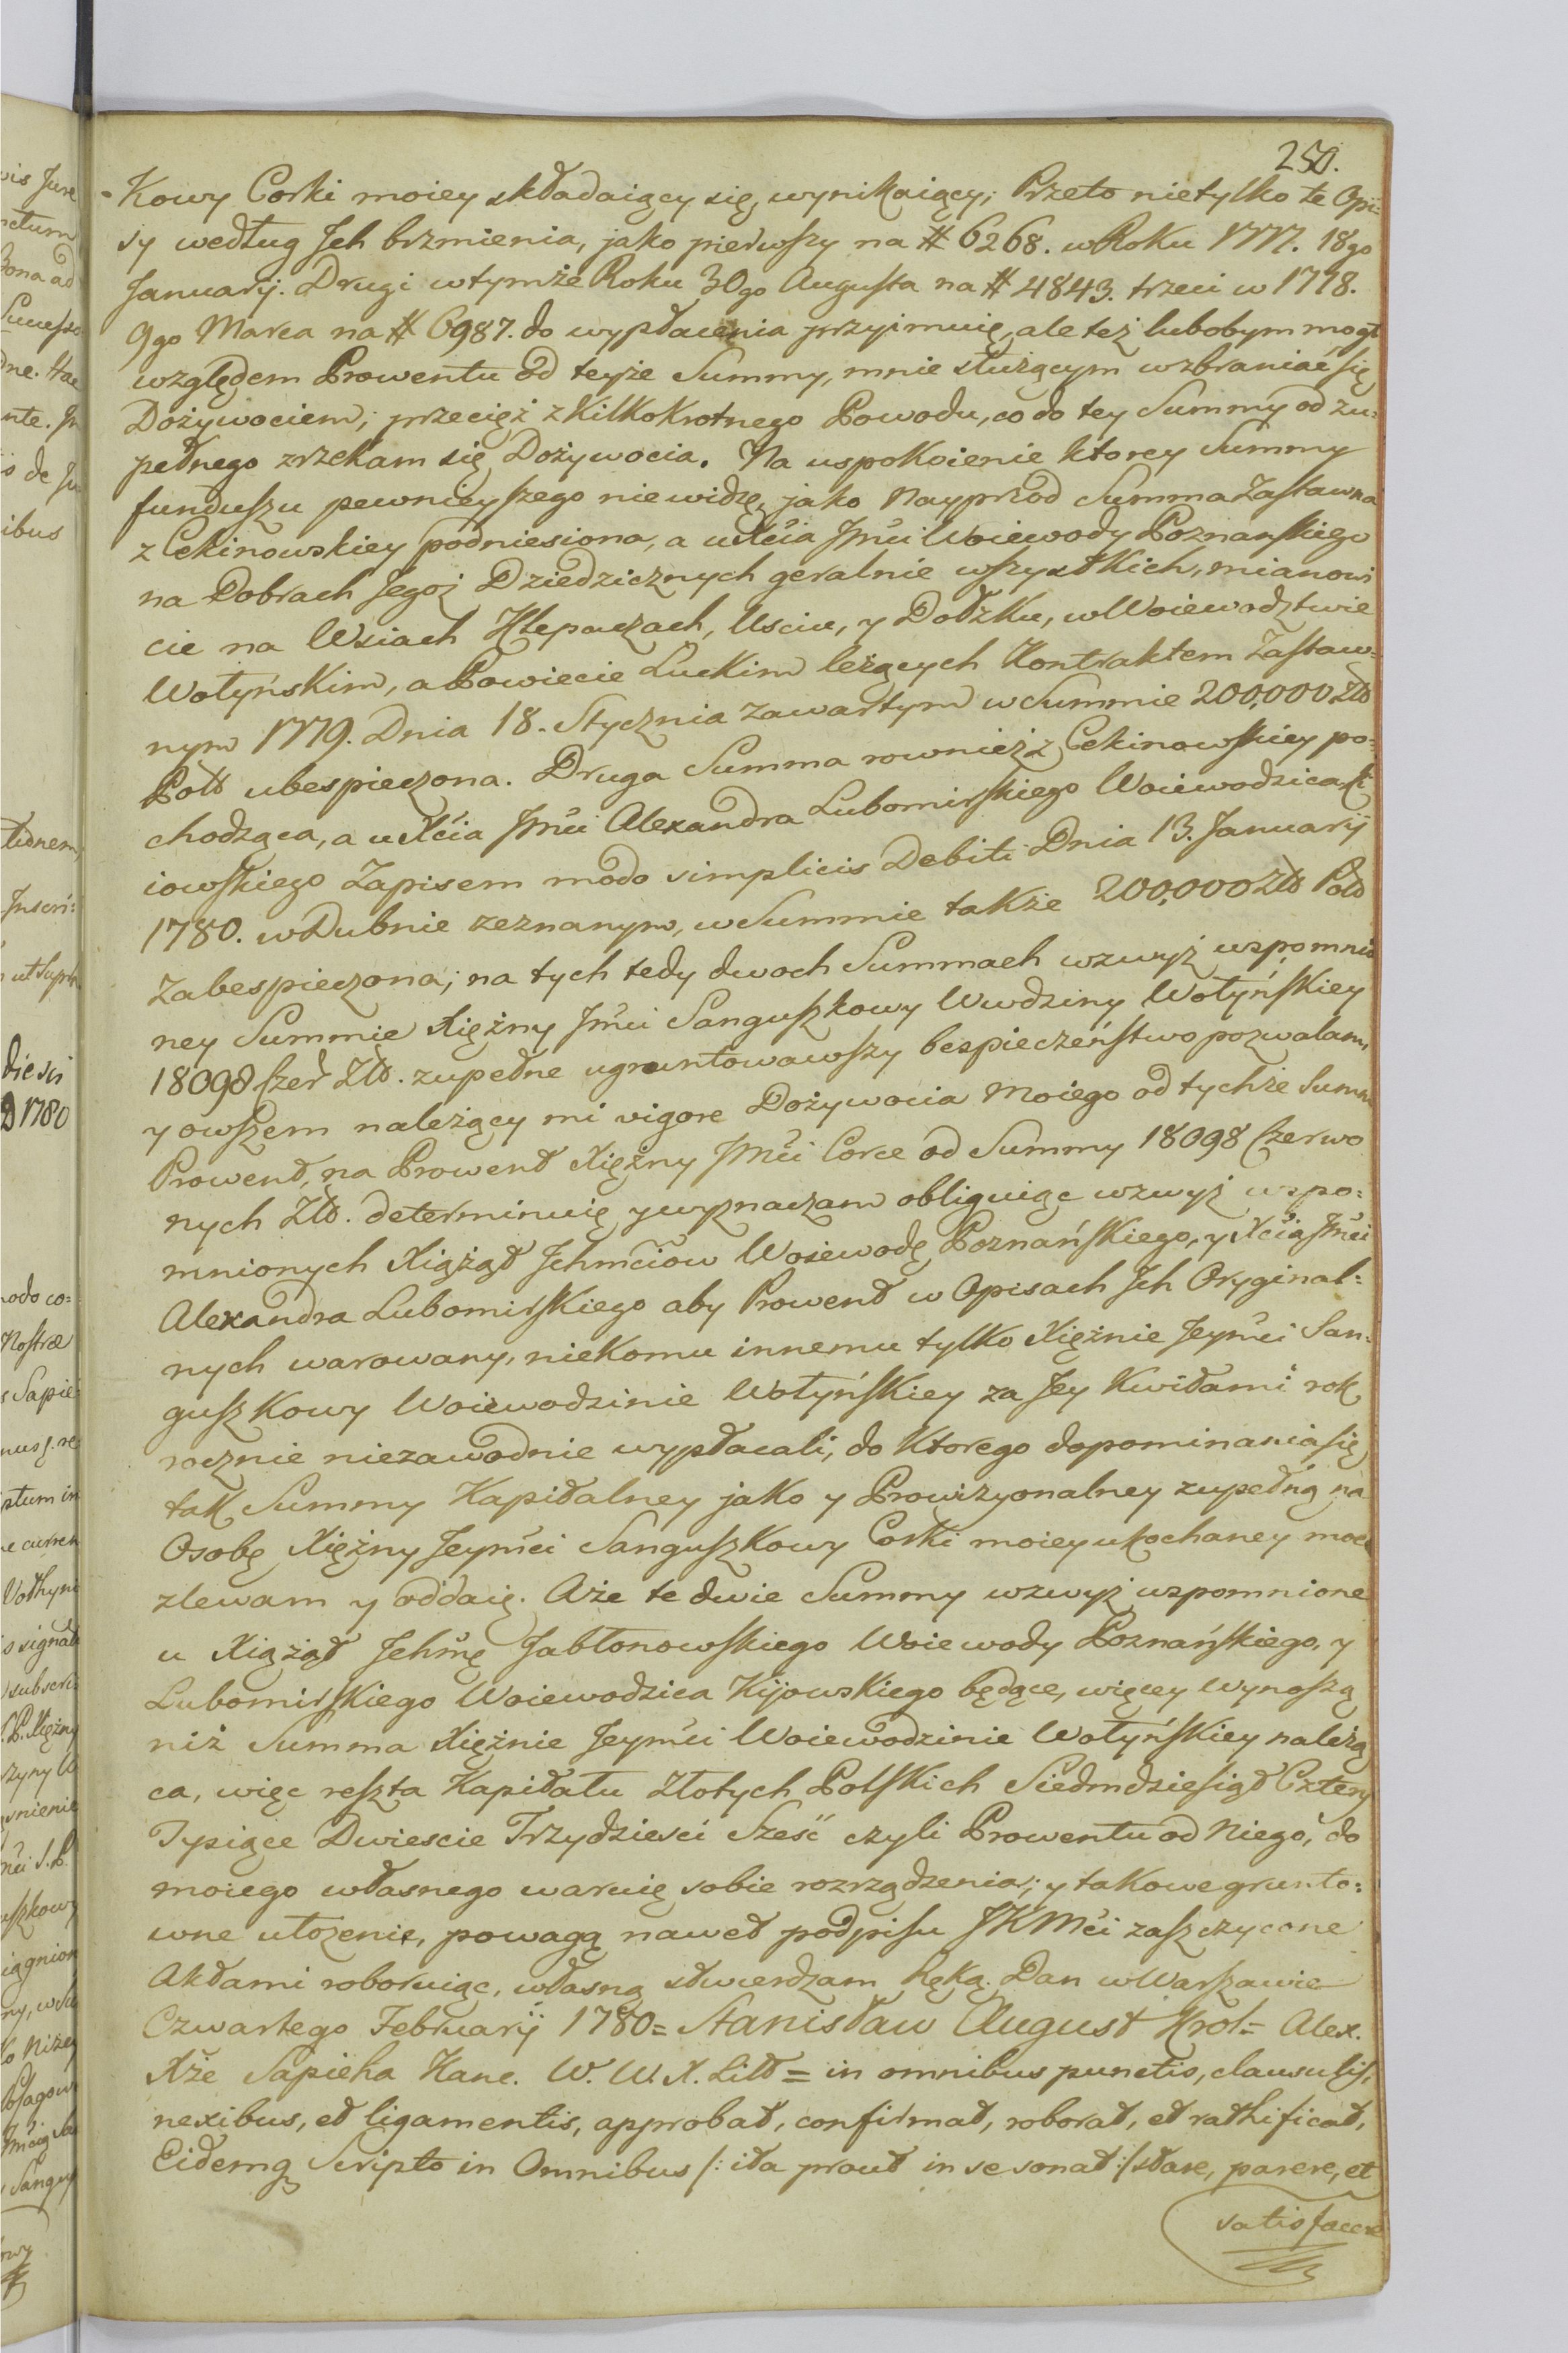 250.
-Kowy Corki moiey składaiący się, wynikaiący; Przeto nietylko te Opi=
sy według Jch brzmienia, jako pierwszy na # 6268. w Roku 1777. 18go
Januarij. Drugi wtymże Roku 30go Augusta na # 4843. trzeci w 1778.
9go Marca na # 6987. do wypłacenia przyimuię, ale też lubobym mogł
względem Prowentu od teyże Summy, mnie służącym wzbraniać się
Dożywociem; przecięż z Kilkokrotnego Powodu, co do tey Summy od zu=
pełnego zrzekam się Dożywocia. Na uspokoienie ktorey Summy
funduszu pewnieyszego niewidzę, jako Nayprzod Summa Zastawna
z Cekinowskiey podniesiona, a u Xcia Jmci Woiewody Poznanskiego
na Dobrach Jegoż Dziedzicznych geralnie wszystkich, mianowi
cie na Wsiach Hlepaczach, Usciu, y Dołżku, w Woiewodztwie
Wołyńskim, a Powiecie Łuckim leżących Kontraktem Zastaw=
nym 1779. Dnia 18. Stycznia zawartym w Summie 200,000 Złt
Polt ubespieczona. Druga Summa rownież z Cekinowskiey po=
chodząca, a u Xcia Jmci Alexandra Lubomirskiego Woiewodzica Ki
iowskiego Zapisem modo simplicis Debiti Dnia 13. Januarij
1780. w Dubnie zeznanym, w Summie także 200,000 Złt Polt
Zabespieczona; na tych tedy dwoch Summach wzwyż wspomnio
ney Summie Xiężny Jmci Sanguszkowy Wwdziny Wołyńskiey
18098 Czer Złt. zupełne ugruntowawszy bespieczeństwo pozwalam
y owszem należący mi vigore Dożywocia Moiego od tychże Summ
Prowent, na Prowent Xiężny Jmci Corce od Summy 18098 Czerwo
nych Złt. determinuię y wyznaczam obliguiąc wzwyż wspo=
mnionych Xiążąt Jchmciow Woiewodę Poznańskiego, y Xcia Jmci
Alexandra Lubomirskiego aby Prowent w Opisach Jch Oryginal=
nych warowany, niekomu innemu tylko Xiężnie Jeymci San=
guszkowy Woiewodzinie Wołyńskiey za Jey Kwitami rok
rocznie niezawodnie wypłacali, do Ktorego dopominania się
tak Summy Kapitalney jako y Prowizyonalney zupełną na
Osobę Xiężny Jeymci Sanguszkowy Corki moiey ukochaney moc
zlewam y oddaię. Aże te dwie Summy wzwyż wspomnione
u Xiążąt Jchmę Jabłonowskiego Woiewody Poznańskiego, y
Lubomirskiego Woiewodzica Kijowskiego będące, więcey wynoszą
niż Summa Xiężnie Jeymci Woiewodzinie Wołyńskiey należą
ca, więc reszta Kapitału Złotych Polskich Siedmdziesiąt Cztery
Tysiące Dwiescie Trzydziesci Szesć czyli Prowentu od niego, do
moiego własnego waruię sobie rozrządzenia; y takowe grunto=
wne ułożenie, powagą nawet podpisu JKMci zaszczycone
Aktami roboruiąc, własną stwierdzam Ręką. Dan w Warszawie
Czwartego Februarij 1780 = Stanisław August Krol = Alex.
Xże Sapieha Kanc. W. W. X. Litt = in omnibus punctis, clausulis,
nexibus, et ligamentis, approbat, confirmat, roborat, et rathificat,
Eidemq Scripto in Omnibus /: ita prout in se sonat :/ stare, parere, et
satisfacere